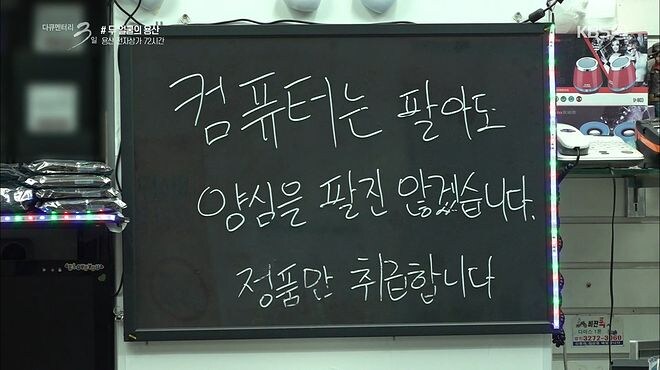 다큐멘터리 3일
# 두 얼굴의 용산
용산 전자상가 72시간
KBS
컴퓨터는 팔아도
양심을 팔진 않겠습니다.
정품만 취급합니다
3272-3060